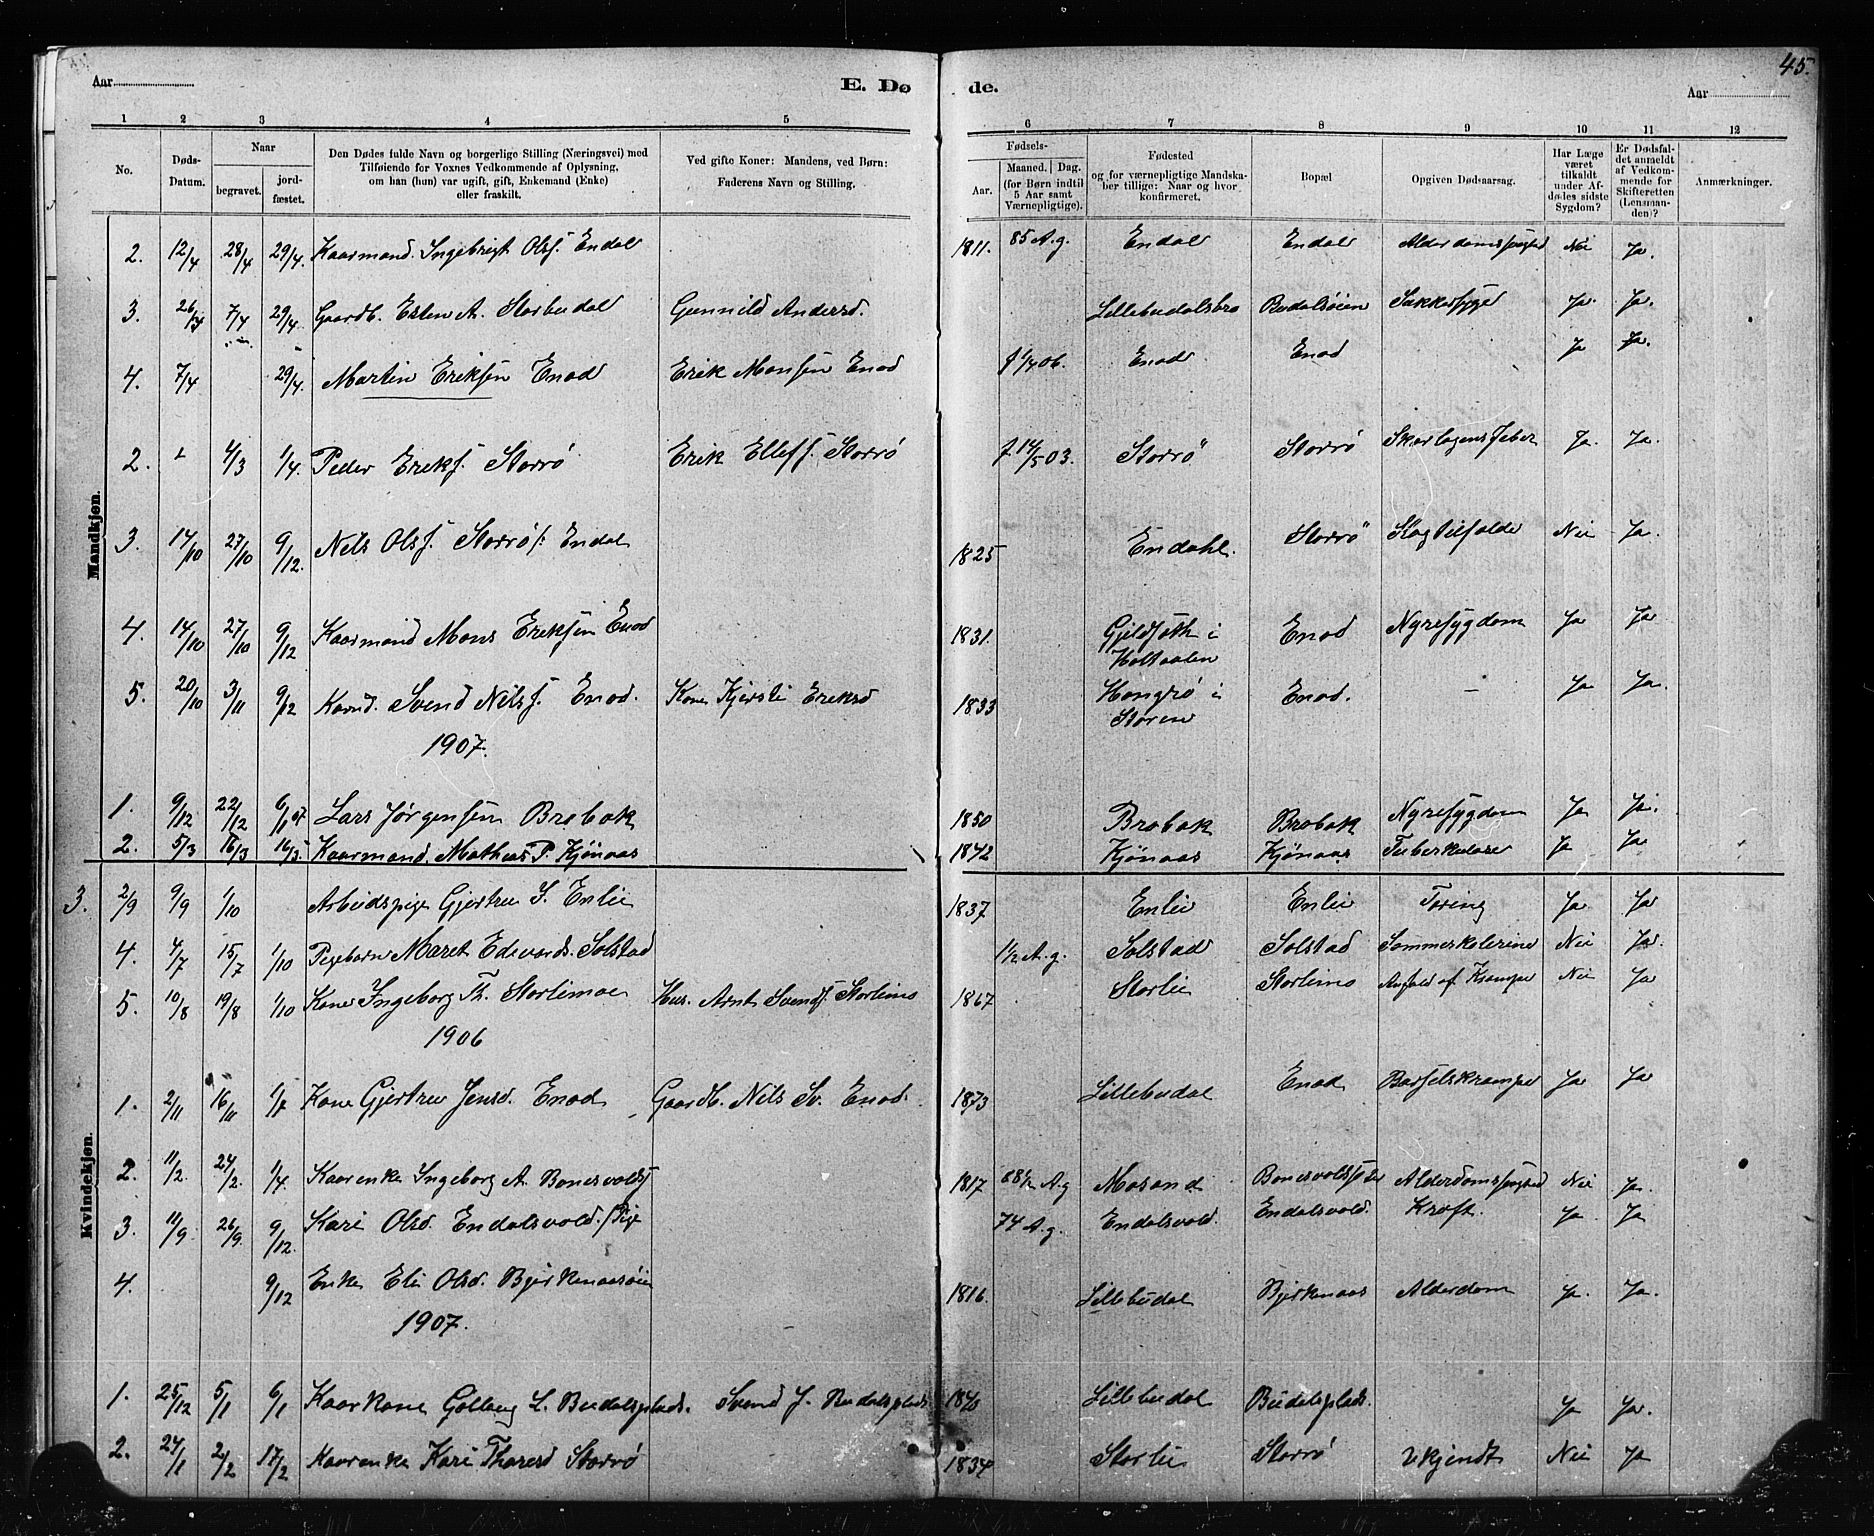 45.
Aar
E. Dø
de.
Aar
1 2 3 4 5 6 7 8 9 10 11 12
No.
Døds-Datum.
Naar
begravet.
jordfæstet.
Den Dødes fulde Navn og borgerlige Stilling (Næringsvei) med
Tilføiende for Voxnes Vedkommende af Oplysning,
om han (hun) var ugift, gift, Enkemand (Enke)
eller fraskilt.
Ved gifte Koner: Mandens, ved Børn:
Faderens Navn og Stilling.
Fødsels-
Aar.
Maaned. Dag.
(for Børn indtil
5 Aar samt
Værnepligtige).
Fødested
og for værnepligtige Mandska-
ber tillige: Naar og hvor
konfirmeret.
Bopæl
Opgiven Dødsaarsag.
Har Læge
været
tilkaldt
under Af-
dødes sidste
Sygdom?
Er Dødsfal-
det anmeldt
af Vedkom-
mende for
Skifteretten
(Lensman-
den)?
Anmærkninger.
Mandkjøn.
2. 12/4 28/4 29/4. Kaarmand Ingebrigt Olsf. Endal 1811. 85 A. g. Endal Endal Alderdomssvaghed Nei Ja.
3. 26/3 7/4 29/4. Gaardb. Esten A. Storbudal Gunnild Andersd. Lillebudalsbro Budalsøien Sukkersyge Ja. Ja.
4. 7/4 29/4. Martin Eriksen Enod Erik Monsen Enod f 1/4 06. Enod Enod Ja Ja.
2. 4/3 1/4. Peder Eriksf. Storrø Erik Ellefs. Storrø f 14/5 03. Storrø Storrø Skarlagensfeber Ja. Ja.
3. 14/10 27/10 9/12. Nils Olsf. Storrø f. Endal 1825 Endahl. Storrø Slagtilfælde Nei Ja.
4. 14/10 27/10 9/12 Kaarmand Mons Eriksen Enod 1831. Gjeldfoth i Holtaalen Enod Nyresygdom Ja Ja
5. 20/10 3/11 9/12 Kaarmd. Svend Nilsf. Enod. Kone Kjersti Eriksd 1833 Hongrø i Støren Enod. – Ja Ja.
1907.
1. 9/12 22/12 6/1 07 Lars Jørgensen Brobak 1850 Brobak Brobak Nyresygdom Ja Ja.
2. 5/3 16/3 16/3 Kaarmand Mathias P. Kjønaas 1842 Kjønaas Kjønaas Tuberkulose Ja Ja
Kvindekjøn.
3. 2/9 9/9 1/10 Arbeidspige Gjertru I. Enlie 1837 Enlie Enlie Tæring Ja Ja
4. 4/7 15/7 1/10 Pigebarn Maret Edvards. Solstad 1½ A. g. Solstad Solstad Sommerkolerine Nei Ja.
5. 10/8 19/8 1/10 Kone Ingeborg Th. Storlimoe Hus. Arnt Svendf. Storlimo 1867 Storlie Storlimo Anfald af Krampe Nei Ja
1906
1. 2/11 16/11 Kone Gjertru Jensd. Enod Gaardb. Nils Sv. Enod. 1873 Lillebudal Enod Barselskrampe Ja Ja
2. 11/2 24/2. 1/4. Kaarenke Ingeborg A. Bonesvolds 1817 88½ A. g Mosand Bonesvoldsæter Alderdomssvaghed Nei Ja.
3. 11/9 26/9. 9/12. Kari Olsd. Endalsvold. Pige 74 A. g. Endalsvold. Endalsvold. Kræft. Ja. Ja
4. 9/12 Enke Eli Olsd. Bjerkenaasøien 1816. Lillebudal Bjerkenaas Alderdom Ja. Ja.
1907.
1. 25/12 5/1 6/1 Kaarkone Gølloug L. Budalsplads. Svend J. Budalsplads Lillebudal Budalsplads. Ja Ja.
2. 24/1 2/2 17/2 Kaarenke Kari Thoresd Storrø 1834 Storlie Storrø Ukjendt Nei Ja